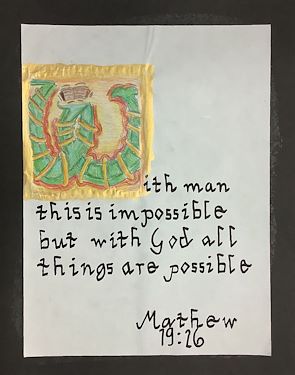 With man
this is impossible
but with God all
things are possible
Mathew
19:26